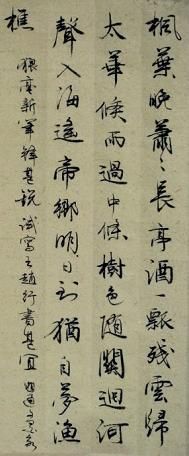 楓葉晚蕭々長亭酒一瓢殘雲歸
太華雨過中條樹色隨關迴河
聲入海遙帝鄉明日到猶自夢漁
樵
新筆 試寫 趙行書甚宜